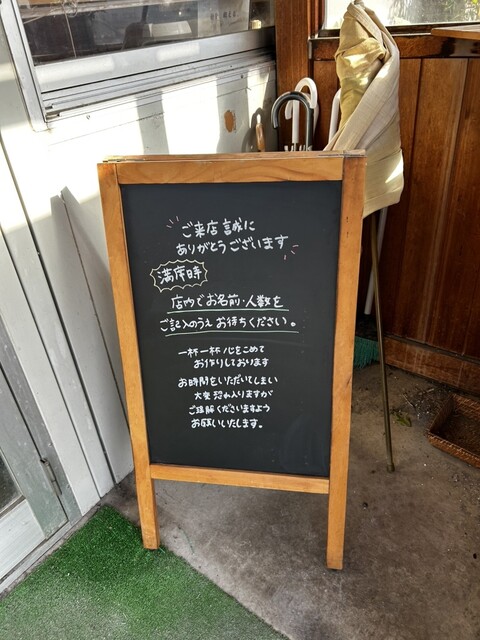 ご来店 誠に
ありがとうございます
満席時
店内でお名前・人数を
ご記入のうえ お待ちください。
一杯一杯 心をこめて
お作りしております
お時間をいただいてしまい
大変 恐れ入りますが
ご理解くださいますよう
お願いいたします。